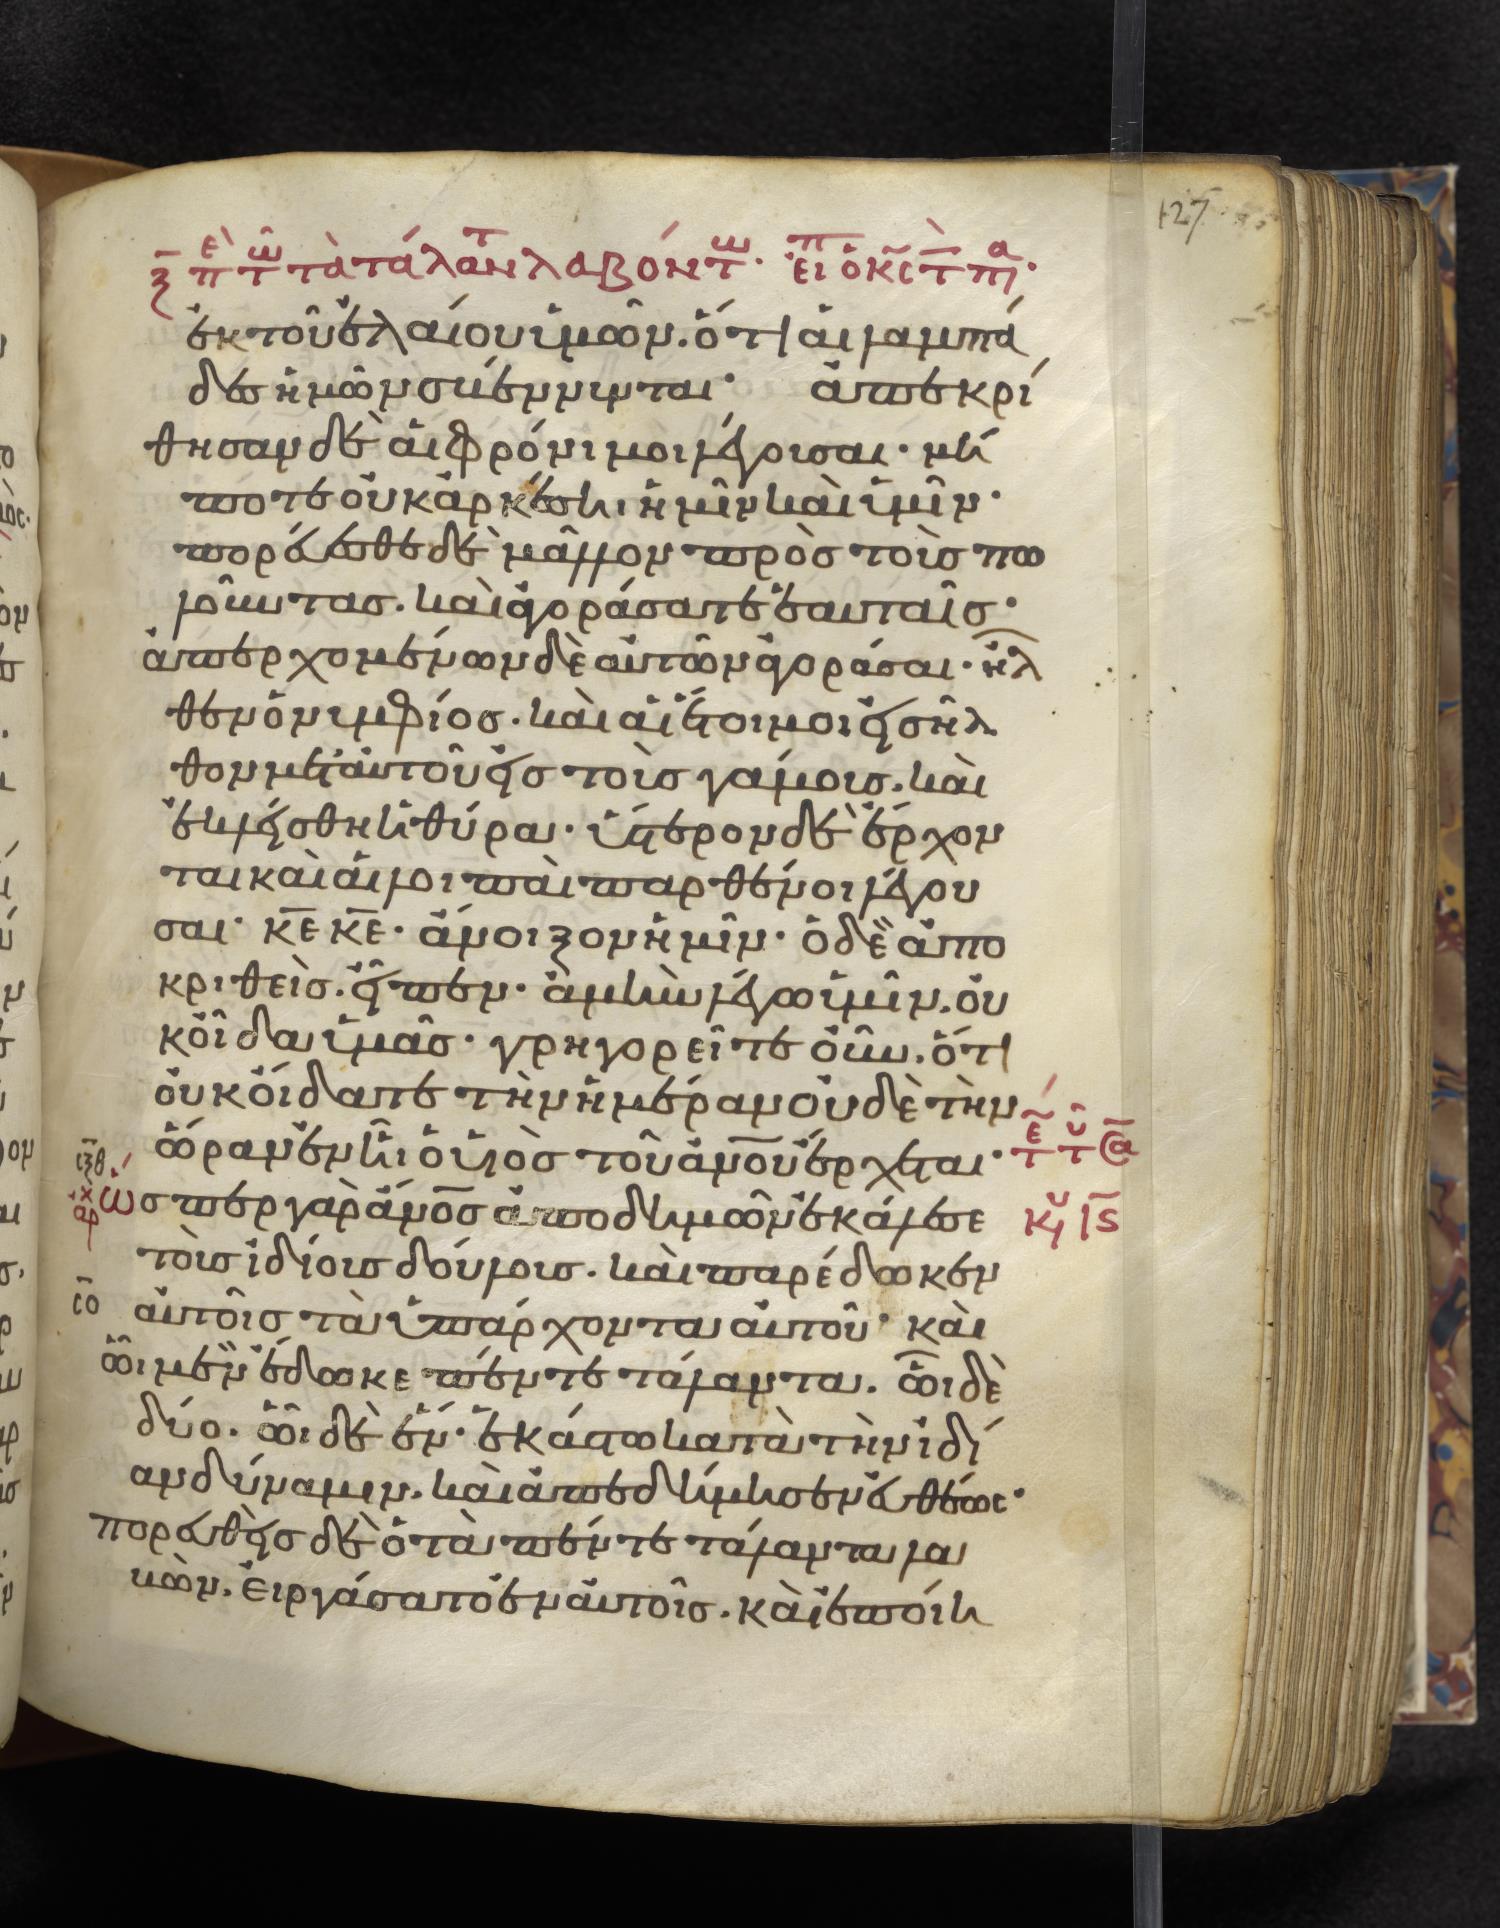 127
ξ πε τω τὰ τάλαντ λαβόντω·
ἐκ τοῦ ἐλαίου ὑμῶν. ὅτι αἱ λαμπά
δες ἡμῶν σβέννυνται· ἀπεκρί
θησαν δὲ αἱ φρόνιμοι λέγουσαι· μή
ποτε οὐκ ἀρκέσηι ἡμῖν καὶ ὑμῖν·
πορεύεσθε δὲ μᾶλλον πρὸς τοὺς πω
λοῦντας. καὶ ἀγοράσατε ἑαυταῖς·
ἀπερχομένων δὲ αὐτῶν ἀγοράσαι· ἦλ
θεν ὁ νυμφίος. καὶ αἱ ἕτοιμοι εἰσῆλ
θον μετ' αὐτοῦ εἰς τοὺς γάμους. καὶ
ἐκλείσθη ἡ θύρα· ὕστερον δὲ ἔρχον
ται καὶ αἱ λοιπαὶ παρθένοι λέγου
σαι· κε κε· ἄνοιξον ἡμῖν· ὁ δὲ ἀπο
κριθεὶς. εἶπεν· ἀμὴν λέγω ὑμῖν. οὐ
κ οἶδα ὑμᾶς· γρηγορεῖτε οὖν. ὅτι
οὐκ οἴδατε τὴν ἡμέραν οὐδὲ τὴν
ὥραν ἐν ἧι ὁ υἱὸς τοῦ ἀνου ἔρχεται·
ὥσπερ γὰρ ἄνος ἀποδημῶν ἐκάλεσε
τοὺς ἰδίους δούλους. καὶ παρέδωκεν
αὐτοῖς τὰ ὑπάρχοντα αὐτοῦ· καὶ
ὧι μὲν ἔδωκε πέντε τάλαντα. ὧι δὲ
δύο. ὧι δὲ ἕν· ἑκάστω κατὰ τὴν ἰδί
αν δύναμιν. καὶ ἀπεδήμησεν εὐθέως·
πορευθεὶς δὲ ὁ τὰ πέντε τάλαντα λα
βὼν. εἰργάσατο ἐν αὐτοῖς. καὶ ἐποίη